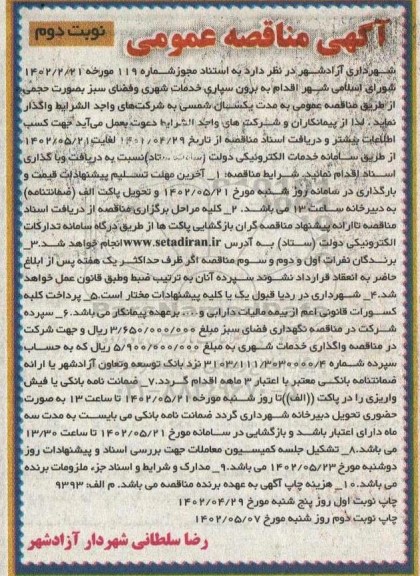 آگهی مناقصه عمومی
نوبت دوم
شهرداری آزادشهر در نظر دارد به استناد مجوزشماره ۱۱۹ مورخه ۱۴۰۲/۲/۲۱
شورای اسلامی شهر اقدام به برون سپاری خدمات شهری وفضای سبز بصورت حجمی
از طریق مناقصه عمومی به مدت یکسال شمسی به شرکت‌های واجد الشرایط واگذار
نماید . لذا از پیمانکاران و شرکت های واجد الشرایط دعوت بعمل می‌آید جهت کسب
اطلاعات بیشتر و دریافت اسناد مناقصه از تاریخ ۱۴۰۱/۰۴/۲۹ لغایت ۱۴۰۲/۰۵/۲۱
از طریق سامانه خدمات الکترونیکی دولت (سامانه ستاد)نسبت به دریافت وبا گذاری
اسناد اقدام نمایند. شرایط مناقصه: ۱_ آخرین مهلت تسلیم پیشنهادات قیمت و
بارگذاری در سامانه روز شنبه مورخ ۱۴۰۲/۰۵/۲۱ و تحویل پاکت الف (ضمانتنامه)
به دبیرخانه ساعت ۱۳ می باشد. ۲_ کلیه مراحل برگزاری مناقصه از دریافت اسناد
مناقصه تاارائه پیشنهاد مناقصه گران بازگشایی پاکت ها از طریق درگاه سامانه تدارکات
الکترونیکی دولت (ستاد) به آدرس www.setadiran.ir انجام خواهد شد.۳_
برندگان نفرات اول و دوم و سوم مناقصه اگر ظرف حداکثر یک هفته پس از ابلاغ
حاضر به انعقاد قرارداد نشوند سپرده آنان به ترتیب ضبط وطبق قانون عمل خواهد
شد.۴_ شهرداری در ردیا قبول یک یا کلیه پیشنهادات مختار است.۵_ پرداخت کلیه
کسورات قانونی اعم از بیمه مالیات دارایی و.... برعهده پیمانکار می باشد.۶_ سپرده
شرکت در مناقصه نگهداری فضای سبز مبلغ ۳/۶۵۰/۰۰۰/۰۰۰ ریال و جهت شرکت
در مناقصه واگذاری خدمات شهری به مبلغ ۵/۹۰۰/۰۰۰/۰۰۰ ریال که به حساب
سپرده شماره ۳۱۰۳/۱۱۱/۳۰۳۰۰۰۰/۴ نزد بانک توسعه وتعاون آزادشهر یا ارائه
ضمانتنامه بانکی معتبر با اعتبار ۳ ماهه اقدام گردد.۷_ ضمانت نامه بانکی یا فیش
واریزی را در پاکت ((الف))تا روز شنبه مورخه ۱۴۰۲/۰۵/۲۱ تا ساعت ۱۳ به صورت
حضوری تحویل دبیرخانه شهرداری گردد ضمانت نامه بانکی می بایست به مدت سه
ماه دارای اعتبار باشد و بازگشایی در سامانه مورخ ۱۴۰۲/۰۵/۲۱ تا ساعت ۱۳/۳۰
می باشد.۸_ تشکیل جلسه کمیسیون معاملات جهت بررسی اسناد و پیشنهادات روز
دوشنبه مورخ ۱۴۰۲/۰۵/۲۳ می باشد.۹_ مدارک و شرایط و اسناد جزء ملزومات برنده
می باشد.۱۰_ هزینه چاپ آگهی به عهده برنده مناقصه می باشد. م الف: ۹۳۹۳
چاپ نوبت اول روز پنج شنبه مورخ ۱۴۰۲/۰۴/۲۹
چاپ نوبت دوم روز شنبه مورخ ۱۴۰۲/۰۵/۰۷
رضا سلطانی شهردار آزادشهر